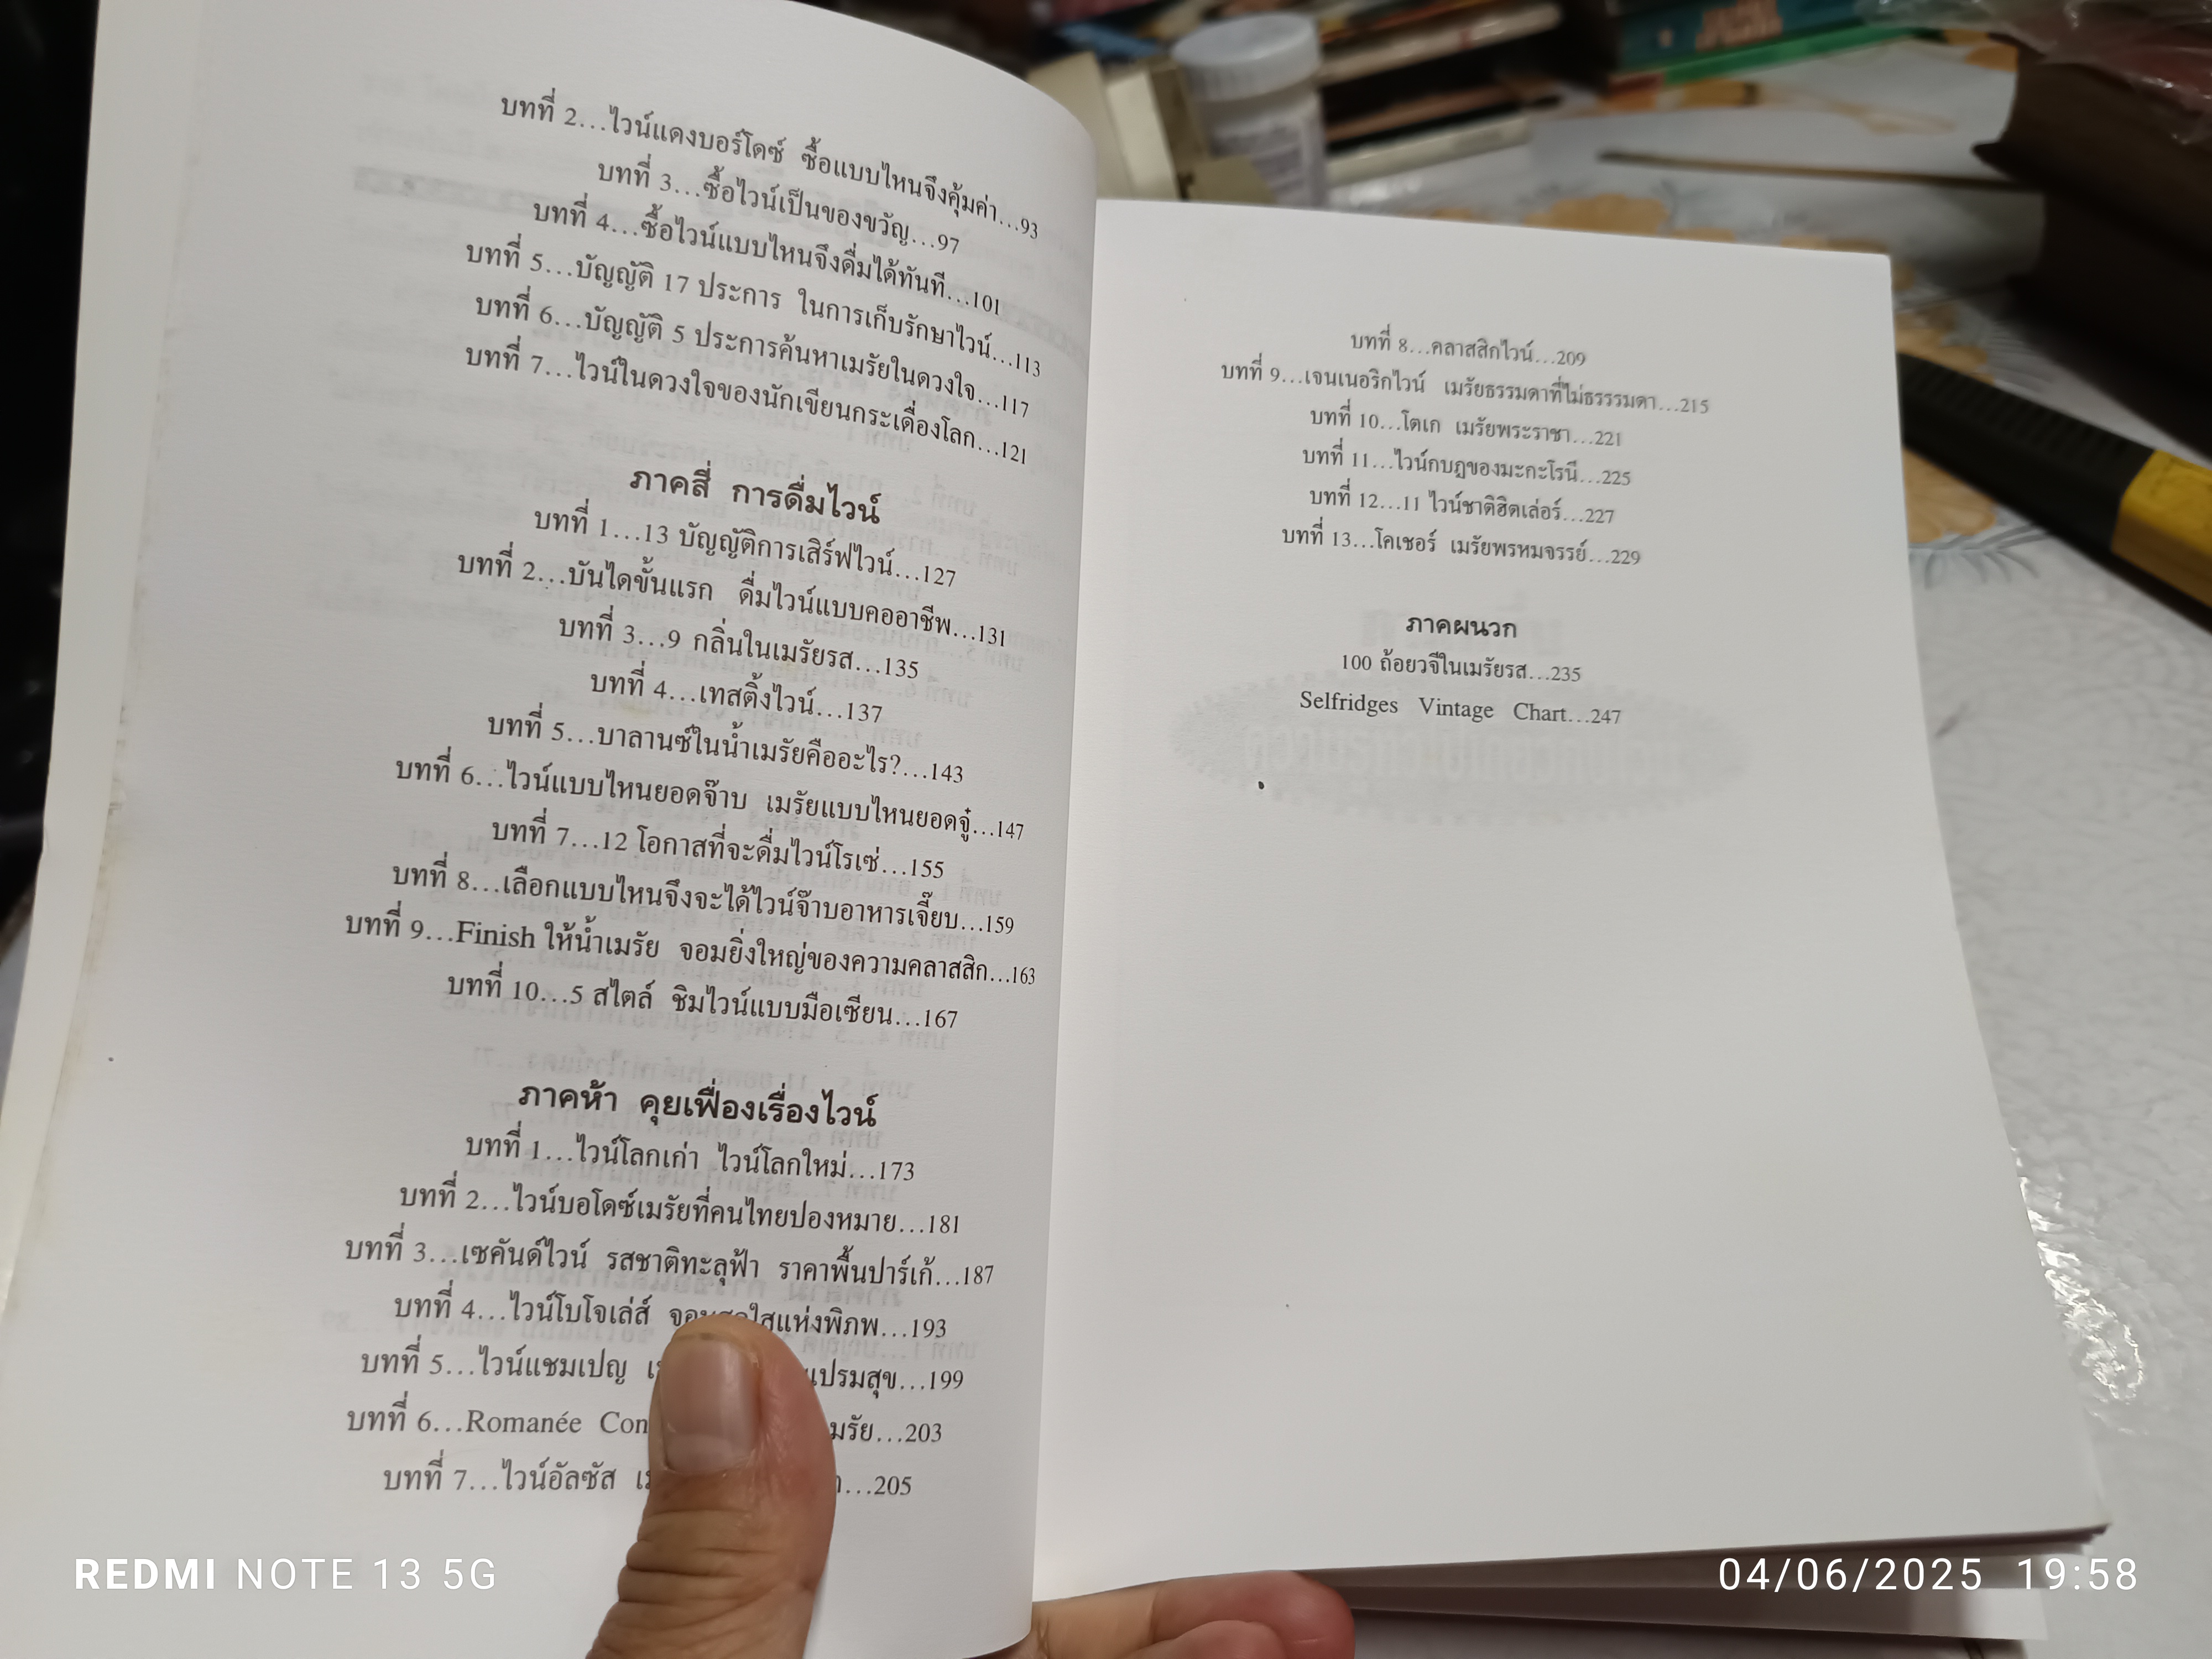 บทที่ 2...ไวน์แดงบอร์โดซ์ ซื้อแบบไหนจึงคุ้มค่า...93
บทที่ 3...ซื้อไวน์เป็นของขวัญ...97
บทที่ 4...ซื้อไวน์แบบไหนจึงดื่มได้ทันที...101
บทที่ 5...บัญญัติ 17 ประการ ในการเก็บรักษาไวน์...113
บทที่ 6...บัญญัติ 5 ประการค้นหาเมรัยในดวงใจ...117
บทที่ 7...ไวน์ในดวงใจของนักเขียนกระเดื่องโลก...121
ภาคสี่ การดื่มไวน์
บทที่ 1...13 บัญญัติการเสิร์ฟไวน์...127
บทที่ 2...บันไดขั้นแรก ดื่มไวน์แบบคออาชีพ...131
บทที่ 3...9 กลิ่นในเมรัยรส...135
บทที่ 4...เทสติ้งไวน์...137
บทที่ 5...บาลานซ์ในน้ำเมรัยคืออะไร?...143
บทที่ 6...ไวน์แบบไหนยอดจ๊าบ เมรัยแบบไหนยอดจู๋...147
บทที่ 7...12 โอกาสที่จะดื่มไวน์โรเซ่...155
บทที่ 8...เลือกแบบไหนจึงจะได้ไวน์จ๊าบอาหารเจี๊ยบ...159
บทที่ 9...Finish ให้น้ำเมรัย จอมยิ่งใหญ่ของความคลาสสิก...163
บทที่ 10...5 สไตล์ ชิมไวน์แบบมือเซียน...167
ภาคห้า คุยเฟื่องเรื่องไวน์
บทที่ 1...ไวน์โลกเก่า ไวน์โลกใหม่...173
บทที่ 2...ไวน์บอโดซ์เมรัยที่คนไทยปองหมาย...181
บทที่ 3...เซคันด์ไวน์ รสชาติทะลุฟ้า ราคาพื้นปาร์เก้...187
บทที่ 4...ไวน์โบโจเล่ส์ แห่งพิภพ...193
บทที่ 5...ไวน์แชมเปญ เปรมสุข...199
บทที่ 6...Romanée มรัย...203
บทที่ 7...ไวน์อัลซัส ...205
บทที่ 8...คลาสสิกไวน์...209
บทที่ 9...เจนเนอริกไวน์ เมรัยธรรมดาที่ไม่ธรรรมดา...215
บทที่ 10...โตเก เมรัยพระราชา...221
บทที่ 11...ไวน์กบฏของมะกะโรนี...225
บทที่ 12...11 ไวน์ชาติฮิตเล่อร์...227
บทที่ 13...โคเชอร์ เมรัยพรหมจรรย์...229
ภาคผนวก
100 ถ้อยวจีในเมรัยรส...235
Selfridges Vintage Chart...247
REDMI NOTE 13 5G
04/06/2025 19:58